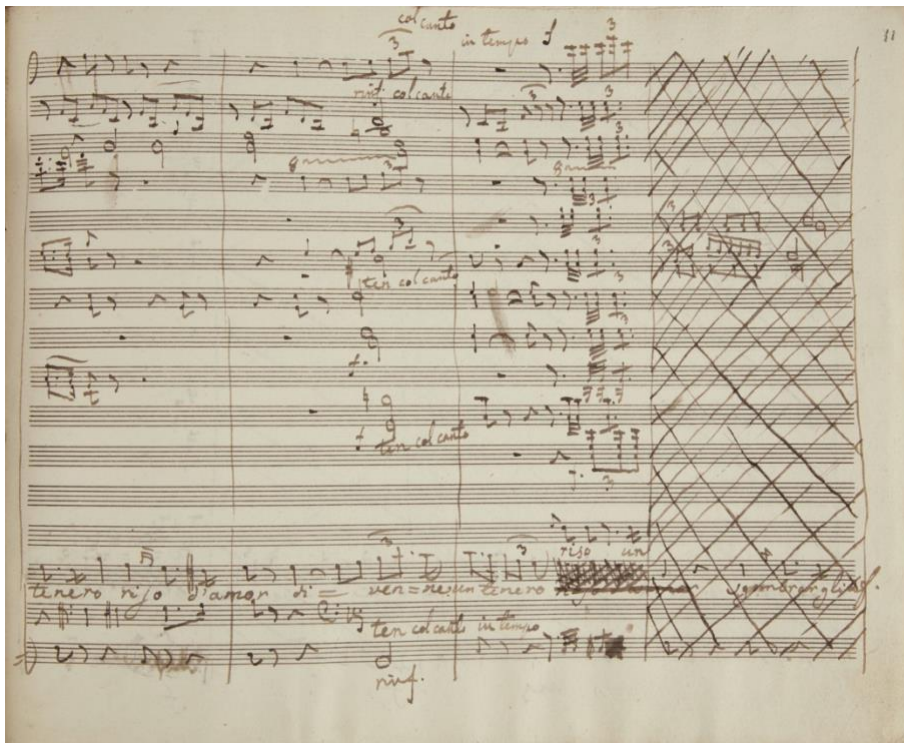 11
col canto
in tempo
3
rinf. col canto
3
3
8
8
3
3
3
3
3
3
ten col canto
3
3
f.
f
ten col canto
3
riso un
3
3
tenero riso d'amor di= ven=ne un tenero
ten col canto in tempo
rinf.